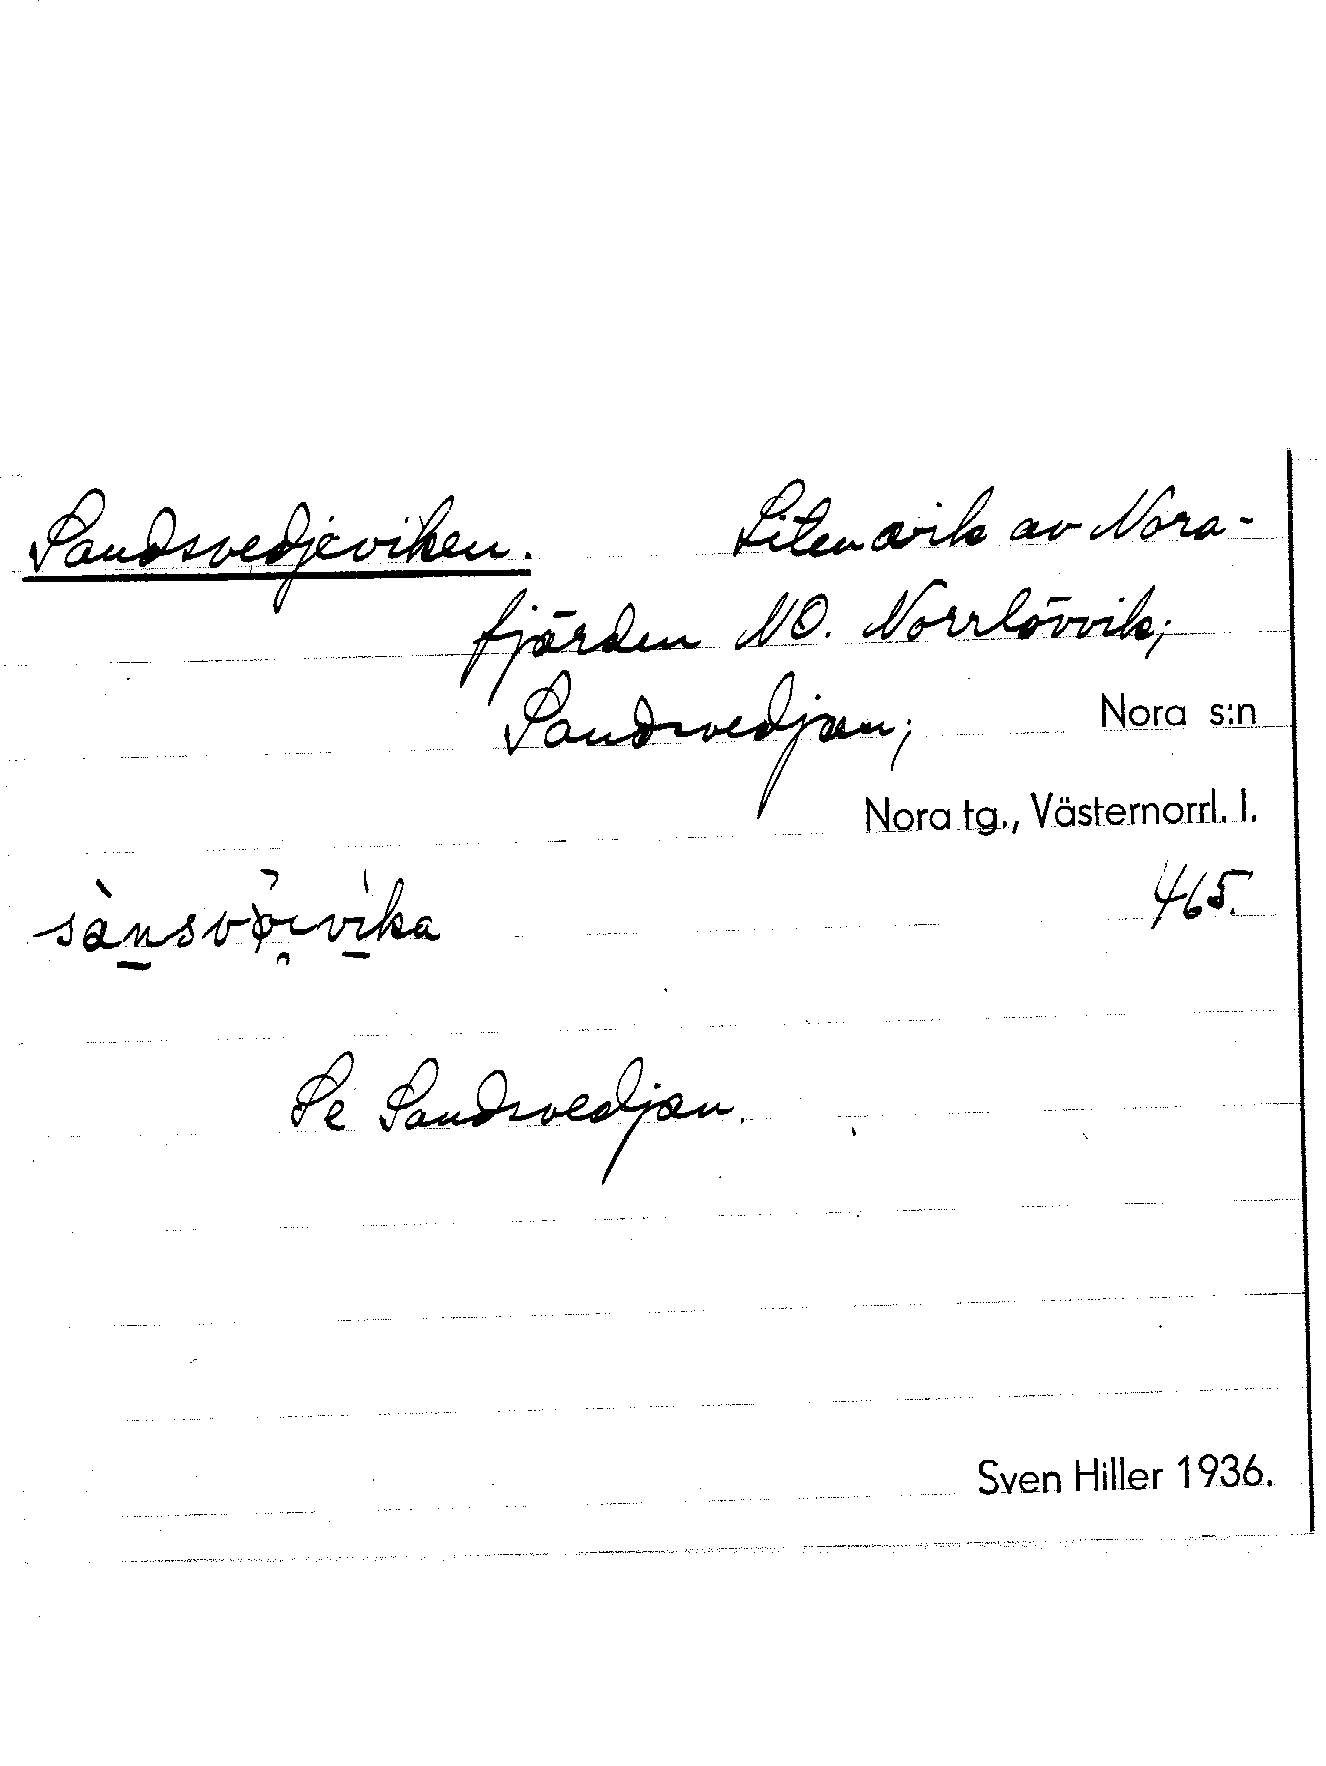 Sandsvedjeviken. Liten vik av Nora-
fjärden NO. Norrlövvik;
Sandsvedjan; Nora s:n
Nora tg., Västernorrl. l.
465.
Se Sandsvedjan.
Sven Hiller 1936.